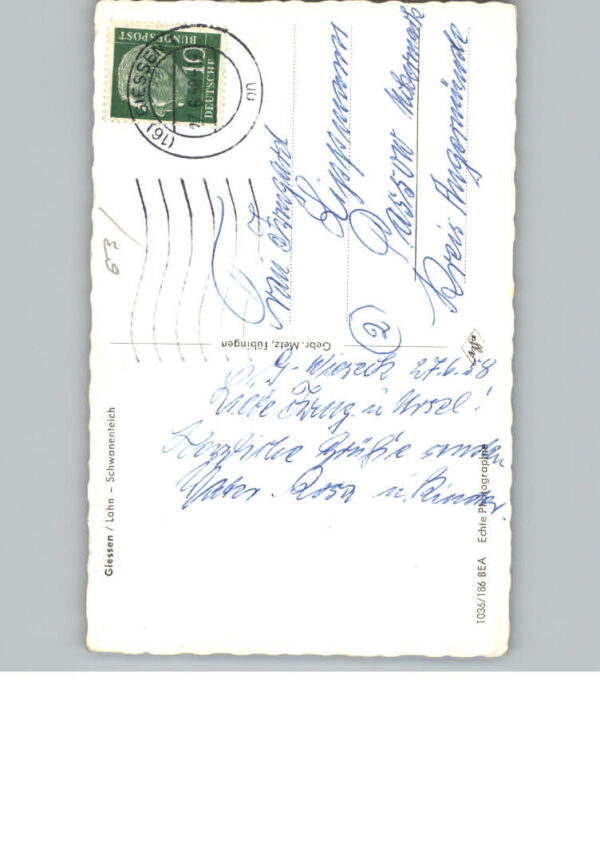 Giessen / Lahn – Schwanenteich
G-Wieseck 27.6.58
Liebe Irmg. u. Ursel!
Herzliche Grüße senden
Vater. Rosa u. Kinder.
Gebr. Metz, Tübingen
1036/186 BEA Echte Photographie
10
DEUTSCHE
BUNDESPOST
(16) GIESSEN
Frau Irmgard
Lippmann
Passow Uckermark
Kreis Angermünde
2